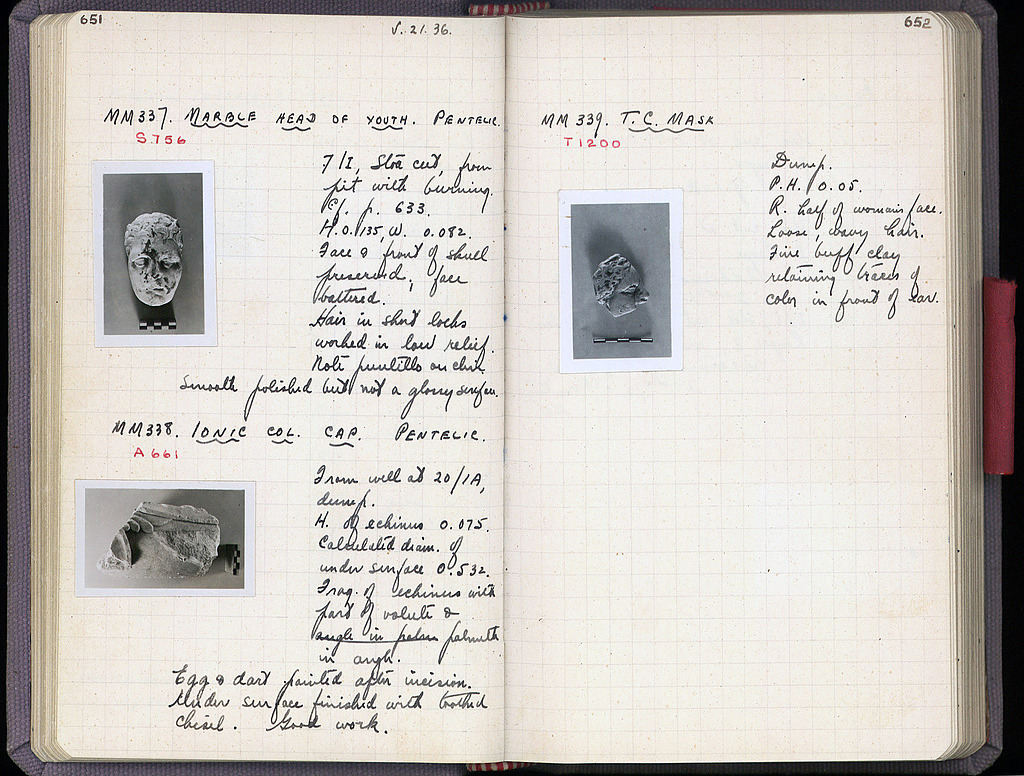 651
V. 21. 36.
MM337. MARBLE HEAD OF YOUTH. PENTELIC.
S.756
7/I, Stoa cut, from
pit with burning.
Cf. p. 633.
H. 0.135, W. 0.082.
Face & front of skull
preserved, face
battered.
Hair in short locks
worked in low relief.
Note puntillo on chin.
Smooth polished but not a glossy surface.
MM338. IONIC COL. CAP. PENTELIC.
A 661
From well at 20/IA,
dump.
H. of echinus 0.075.
Calculated diam. of
under surface 0.532.
Frag. of echinus with
part of volute &
angle in palm palmette
in angle.
Egg & dart painted after incision.
Under surface finished with toothed
chisel. Good work.
652
MM 339. T.C. MASK
T1200
Dump.
P.H. 0.05.
R. half of woman's face.
Loose, wavy hair.
Fine buff clay
retaining traces of
color in front of ear.